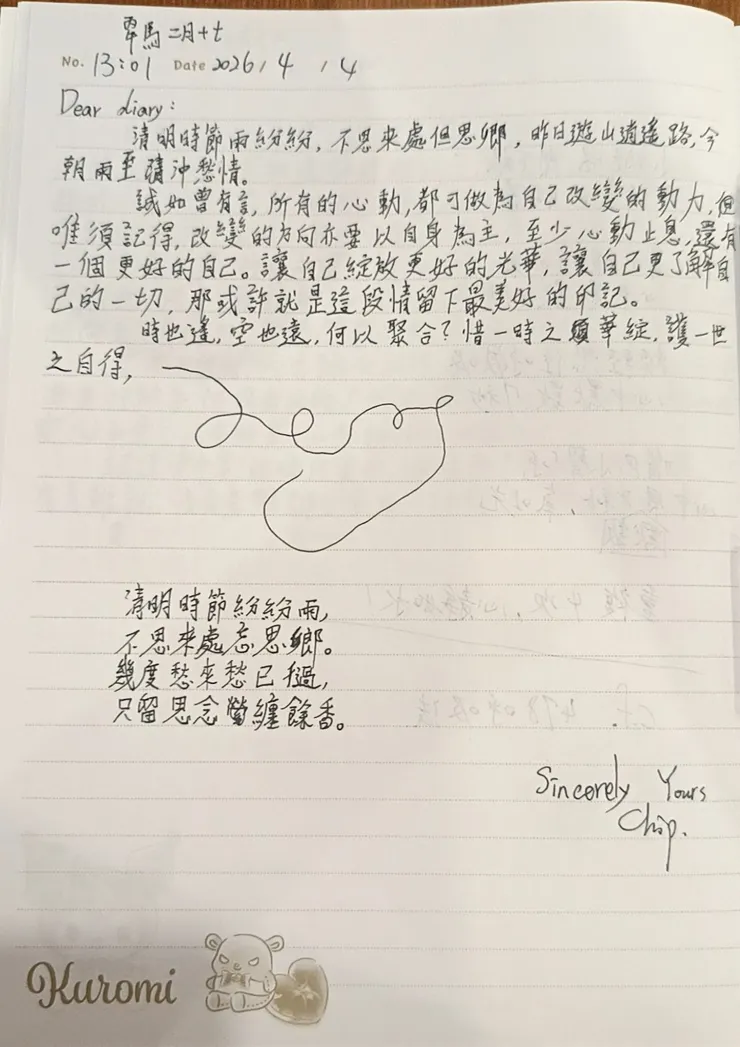 馬二月十七
No. 13:01 Date 2026 / 4 / 4
Dear diary:
清明時節雨紛紛, 不思來處但思鄉, 昨日遊山逍遙路, 今
朝雨至積沖愁情。
誠如曾有言, 所有的心動, 都可做為自己改變的動力, 但
唯須記得, 改變的方向亦要以自身為主, 至少心動止息, 還有
一個更好的自己。讓自己綻放更好的光華, 讓自己更了解自
己的一切, 那或許就是這段情留下最美好的印記。
時也逢, 空也遠, 何以聚合? 惜一時之華綻, 護一世
之自得,
清明時節紛紛雨,
不思來處忘思鄉。
幾度愁來愁已過,
只留思念縈纏餘香。
Sincerely Yours
Chip.
Kuromi